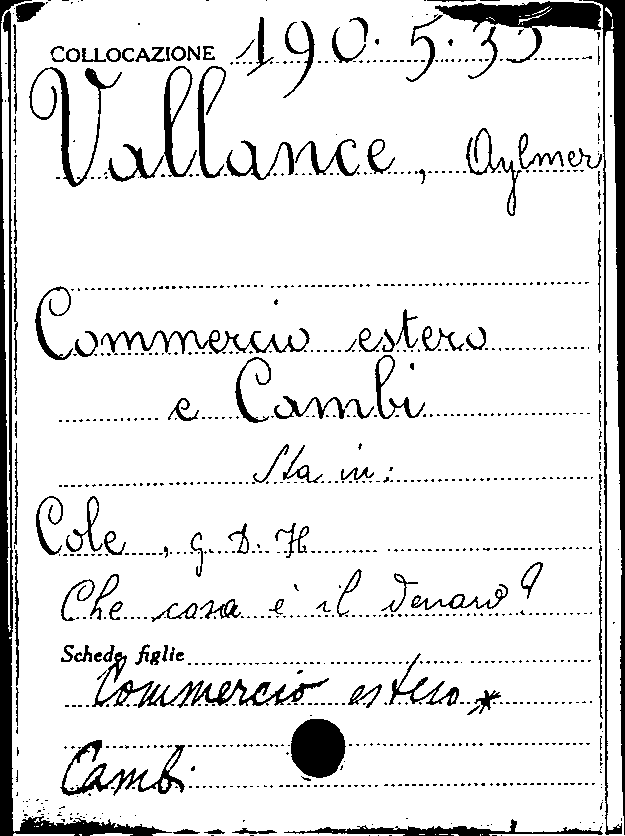 COLLOCAZIONE 190. 5. 35
Vallance, Aylmer
Commercio estero
e Cambi
Sta in:
Cole, G. D. H
Che cosa è il denaro?
Schede figlie
Commercio estero *
Cambi